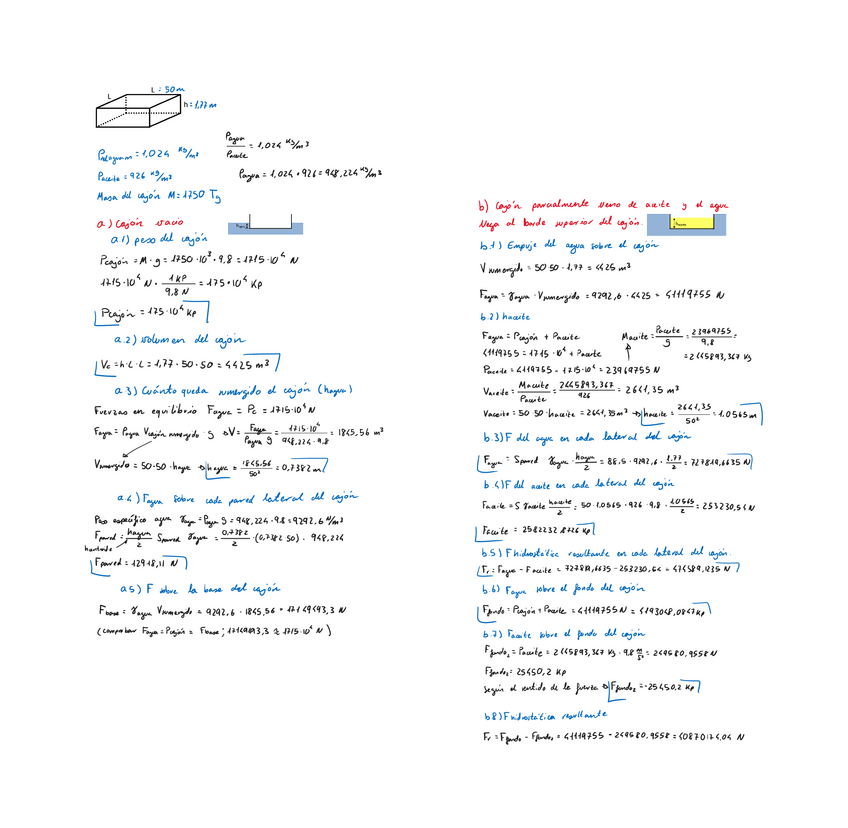 L
L = 50m
h = 1,77 m
Pholograma = 1,024 kg/m³
Paceite = 926 kg/m³
Masa del cajón M = 1750 Tg
Pagua / Paceite = 1,024 kg/m³
Pagua = 1,024 · 926 = 948,224 kg/m³
a) Cajón vacio
a.1) peso del cajón
Pcajón = M · g = 1750·10³ · 9,8 = 1715·10⁴ N
1715·10⁴ N · 1 KP / 9,8 N = 175·10⁴ Kp
Pcajón = 175·10⁴ kp
a.2) volumen del cajón
Vc = h·L·L = 1,77 · 50 · 50 = 4425 m³
a.3) Cuánto queda sumergido el cajón (hagua)
Fuerzas en equilibrio Fagua = Pc = 1715·10⁴ N
Fagua = Pagua Vcajón sumergido · g → V = Fagua / Pagua g = 1715·10⁴ / 948,224 · 9,8 = 1845,56 m³
Vsumergido = 50·50 · hagua → hagua = 1845,56 / 50² = 0,7382 m
a.4) Fagua sobre cada pared lateral del cajón
Peso específico agua γagua = Pagua g = 948,224 · 9.8 = 9292,6 N/m³
Fpared = hagua / 2 Spared γagua = 0,7382 / 2 · (0,7382·50) · 948,224
Fpared = 12918,11 N
a5) F sobre la base del cajón
Fbase = γagua Vsumergido = 9292,6 · 1845,56 = 17149493,3 N
(comprobar Fagua = Pcajón = Fbase; 17149493,3 ≈ 1715·10⁴ N)
b) Cajón parcialmente lleno de aceite y el agua
llega al borde superior del cajón.
b.1) Empuje del agua sobre el cajón
Vsumergido = 50·50 · 1,77 = 4425 m³
Fagua = γagua · Vsumergido = 9292,6 · 4425 = 41119755 N
b.2) haceite
Fagua = Pcajón + Paceite
41119755 = 1715·10⁴ + Paceite
Paceite = 4119765 - 1715·10⁴ = 23969755 N
Maceite = Paceite / g = 23969755 / 9,8 =
= 2445893,367 kg
Vaceite = Maceite / Paceite = 2445893,367 / 926 = 2641,35 m³
Vaceite = 50·50 · haceite = 2641,35 m³ → haceite = 2641,35 / 50² = 1,0565 m
b.3) F del agua en cada lateral del cajón
Fagua = Spared · γagua · hagua / 2 = 88,5 · 9292,6 · 1.77 / 2 = 727819,6635 N
b.4) F del aceite en cada lateral del cajón
Faceite = S γaceite haceite / 2 = 50 · 1.0565 · 926 · 9.8 · 1.0565 / 2 = 253230,54 N
b.5) F hidrostática resultante en cada lateral del cajón.
Fr = Fagua - Faceite = 727819,6635 - 253230,54 = 474589,1235 N
b.6) Fagua sobre el fondo del cajón
Ffondo = Pcajón + Paceite = 41119755 N = 4193048,0847 kp
b.7) Faceite sobre el fondo del cajón
Ffondo₂ = Paceite = 2445893,367 kg · 9,8 m/s² = 249580,9558 N
Ffondo₂ = 25450,2 Kp
según el sentido de la fuerza → Ffondo₂ = -25450,2 Kp
b8) F hidrostática resultante
Fr = Ffondo - Ffondo₂ = 41119755 - 249580,9558 = 40870174,04 N